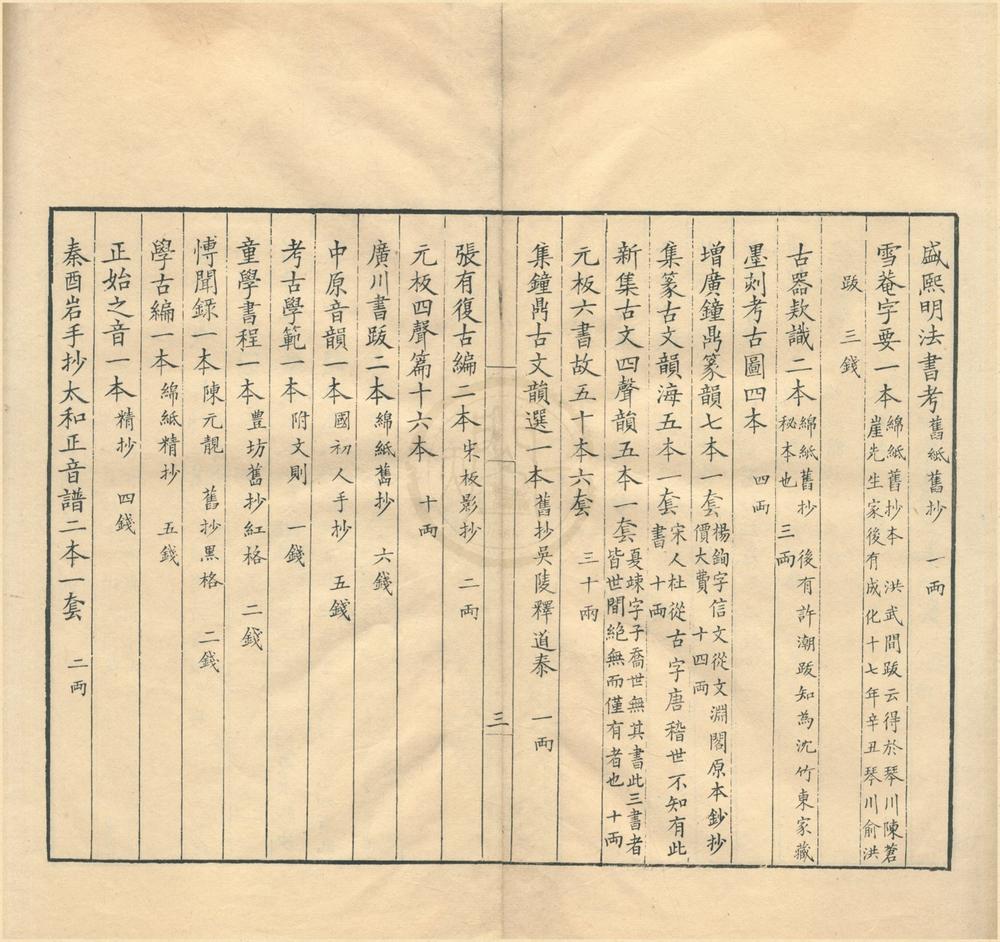 盛熙明法書考舊紙舊抄 一両
雪菴字要一本綿紙舊抄本 洪武間跋云得於琴川陳蒼
崖先生家後有成化十七年辛丑琴川俞洪
跋 三錢
古器欵識二本綿紙舊抄 後有許潮跋知為沈竹東家藏
秘本也 三両
墨刻考古圖四本 四両
增廣鐘鼎篆韻七本一套楊鉤字信文從文淵閣原本鈔抄
價大費 十四両
集篆古文韻海五本一套宋人杜從古字唐稽世不知有此
書 十両
新集古文四聲韻五本一套夏竦字子喬世無其書此三書者
皆世間絕無而僅有者也 十両
元板六書故五十本六套 三十兩
集鐘鼎古文韻選一本舊抄吳陵釋道泰 一両
三
張有復古編二本宋板影抄 二両
元板四聲篇十六本 十両
廣川書跋二本綿紙舊抄 六錢
中原音韻一本國初人手抄 五錢
考古學範一本附文則 一錢
童學書程一本豐坊舊抄紅格 二錢
愽聞録一本陳元靚 舊抄黑格 二錢
學古編一本綿紙精抄 五錢
正始之音一本精抄 四錢
秦酉岩手抄太和正音譜二本一套 二両